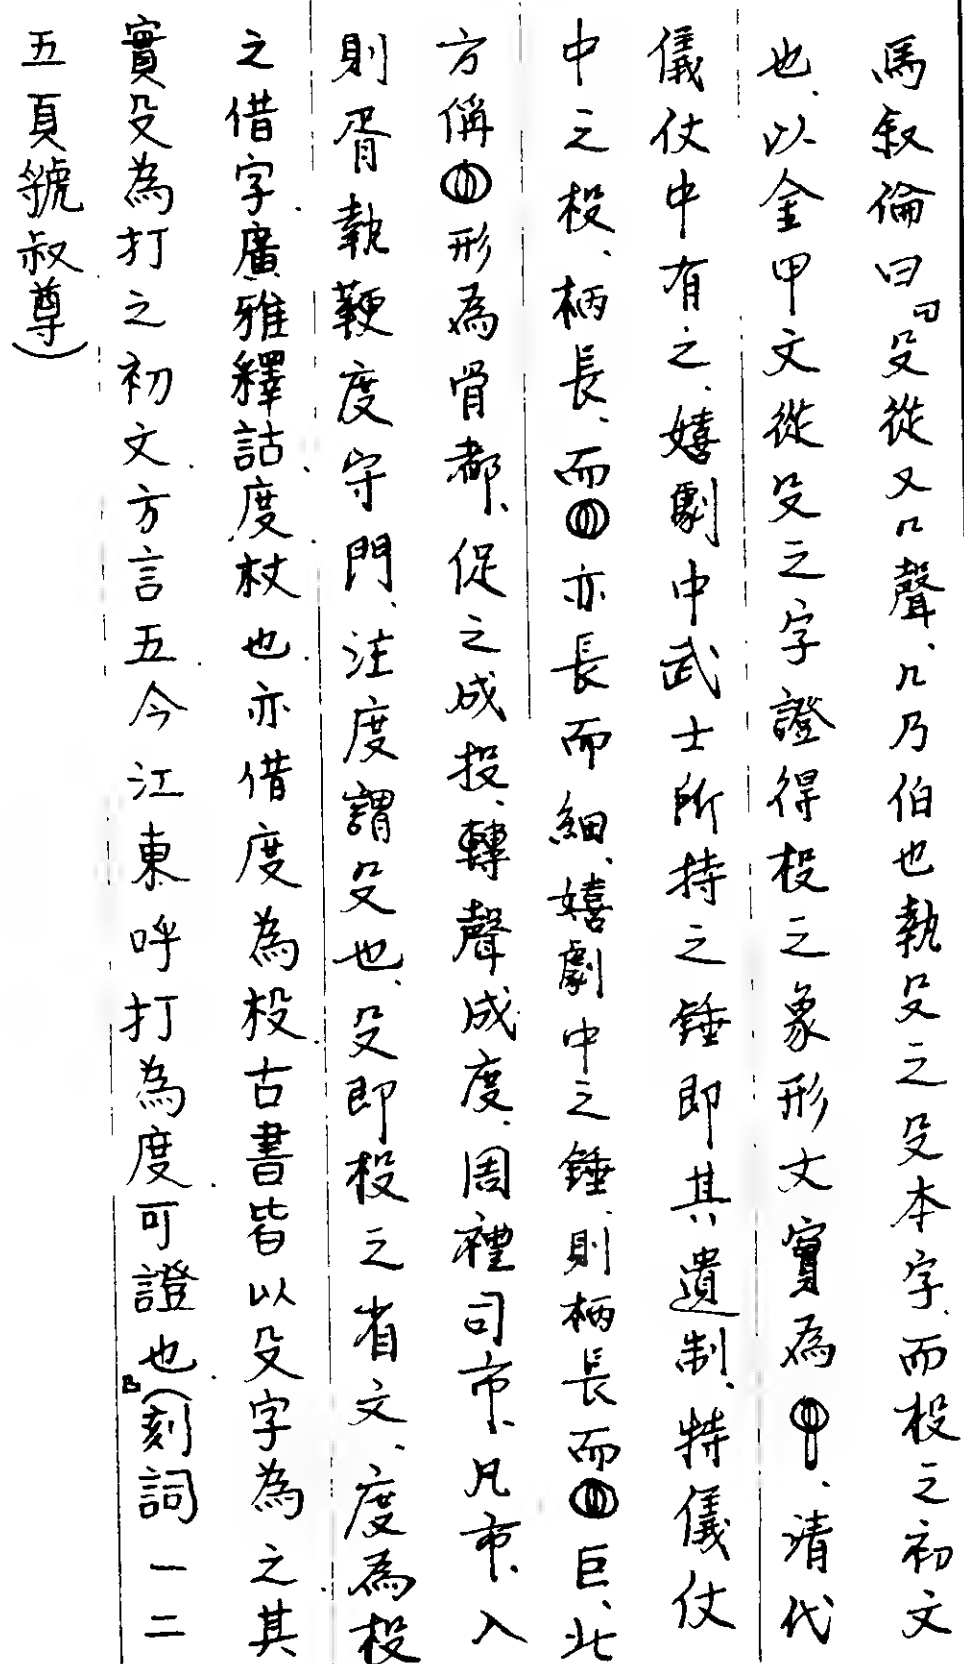 馬叙倫曰「殳從又几聲、几乃伯也執殳之殳本字、而杸之初文
也、以金甲文從殳之字證得杸之象形文實為、清代
儀仗中有之、嬉劇中武士所持之錘即其遺制、特儀仗
中之杸、柄長、而亦長而細、嬉劇中之錘、則柄長而巨、此
方偁形為骨都、促之成杸、轉聲成度、周禮司市、凡市、入
則胥執鞭度守門、注度謂殳也、殳即杸之省文、度為杸
之借字、廣雅釋詁、度、杖也、亦借度為杸、古書皆以殳字為之、其
實殳為打之初文、方言五、今江東呼打為度、可證也」(刻詞一二
五頁虢叔尊)